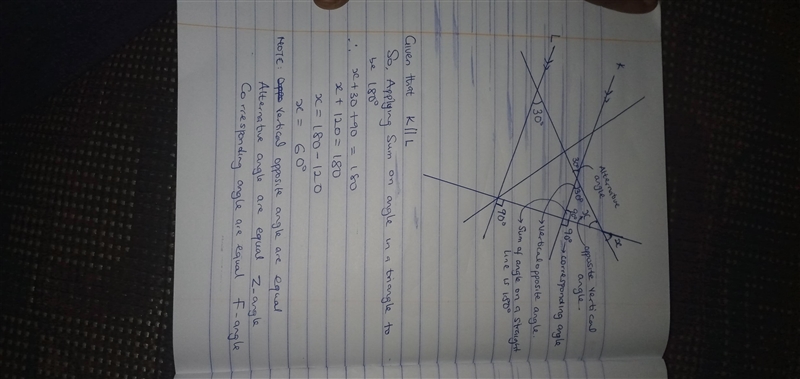 L
K
30°
30°
30°
90°
x
x
Alternative
angle
opposite vertical
angle.
90° → corresponding angle
→ Vertical opposite angle.
→ Sum of angle on a straight
line is 180°
90°
Given that K || L
So, Applying Sum on angle in a triangle to
be 180°
∴ x + 30 + 90 = 180
x + 120 = 180
x = 180 - 120
x = 60°
NOTE: Vertical opposite angle are equal
Alternative angle are equal Z-angle
Corresponding angle are equal F-angle